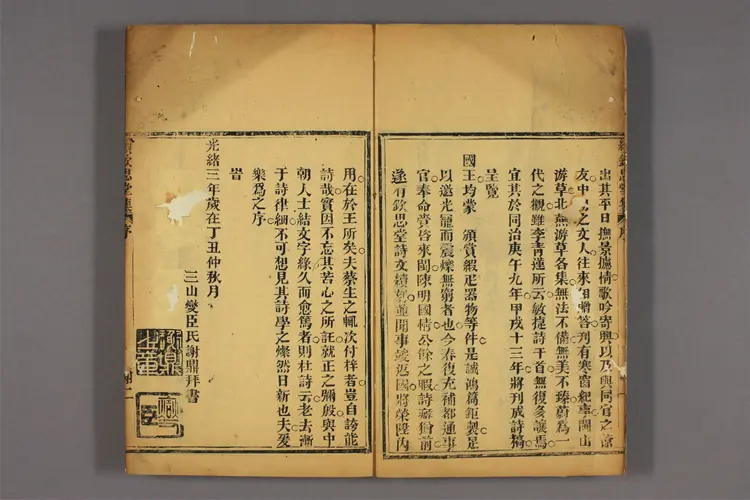 出其平日撫景攄情歌吟寄興以及與同官之僚
友中之文人往來相贈答刊有寒窗紀事閩山
游草北燕游草各集無法不備無美不臻蔚為一
代之觀雖李青蓮所云敏捷詩千首無復多讓焉
宜其於同治庚午九年甲戌十三年將刊成詩稿
呈覽
國王均蒙 頒賞緞疋器物等件是誠鴻篇鉅製足
以邀光寵而震爍無窮者也今春復充補都通事
官奉命賫咨來閩陳明國情公餘之暇詩癖猶前
遂有欽思堂詩文續刻並聞事竣返國將榮陞內
用在於王所矣夫蔡生之輒次付梓者豈自誇能
詩哉實因不忘其苦心之所註就正之彌殷與中
朝人士結文字緣久而愈篤者則杜詩云老去漸
于詩律細不可想見其詩學之燦然日新也夫爰
樂為之序
旹
光緒三年歲在丁丑仲秋月
三山燮臣氏謝鼎拜書
欽思堂集 序